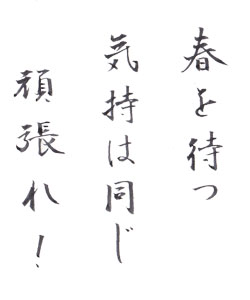 春を待つ
気持は同じ
頑張れ！